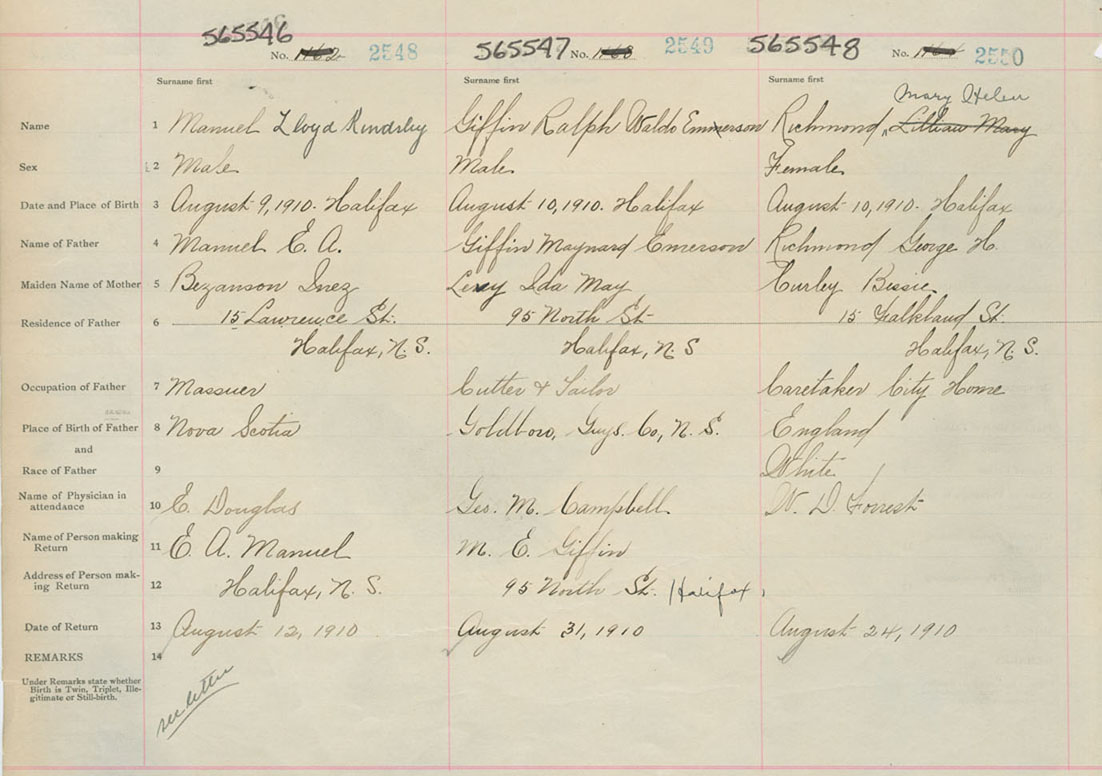 565546 565547 565548
No. 2548 No. 2549 No. 2550
Surname first Surname first Surname first
Mary Helen
Name 1 Manuel Lloyd Kindsley Giffin Ralph Waldo Emmerson Richmond, Lillian Mary
Sex 2 Male Male Female
Date and Place of Birth 3 August 9, 1910. Halifax August 10, 1910. Halifax August 10, 1910. Halifax
Name of Father 4 Manuel E. A. Giffin Maynard Emerson Richmond George H.
Maiden Name of Mother 5 Bezanson Inez Ida May Curley Bissie
Residence of Father 6 15 Lawrence St. 95 North St 15 Falkland St.
Halifax, N. S. Halifax, N. S Halifax, N. S.
Occupation of Father 7 Massuer Cutter & Tailor Caretaker City Home
Place of Birth of Father 8 Nova Scotia Goldboro, Guys. Co, N. S. England
and
Race of Father 9 White
Name of Physician in attendance 10 E. Douglas Geo. M. Campbell W. D. Forrest
Name of Person making Return 11 E. A. Manuel M. E. Giffin
Address of Person mak-
ing Return 12 Halifax, N. S. 95 North St. Halifax,
Date of Return 13 August 12, 1910 August 31, 1910 August 24, 1910
REMARKS 14
Under Remarks state whether
Birth is Twin, Triplet, Ille-
gitimate or Still-birth.
see letter